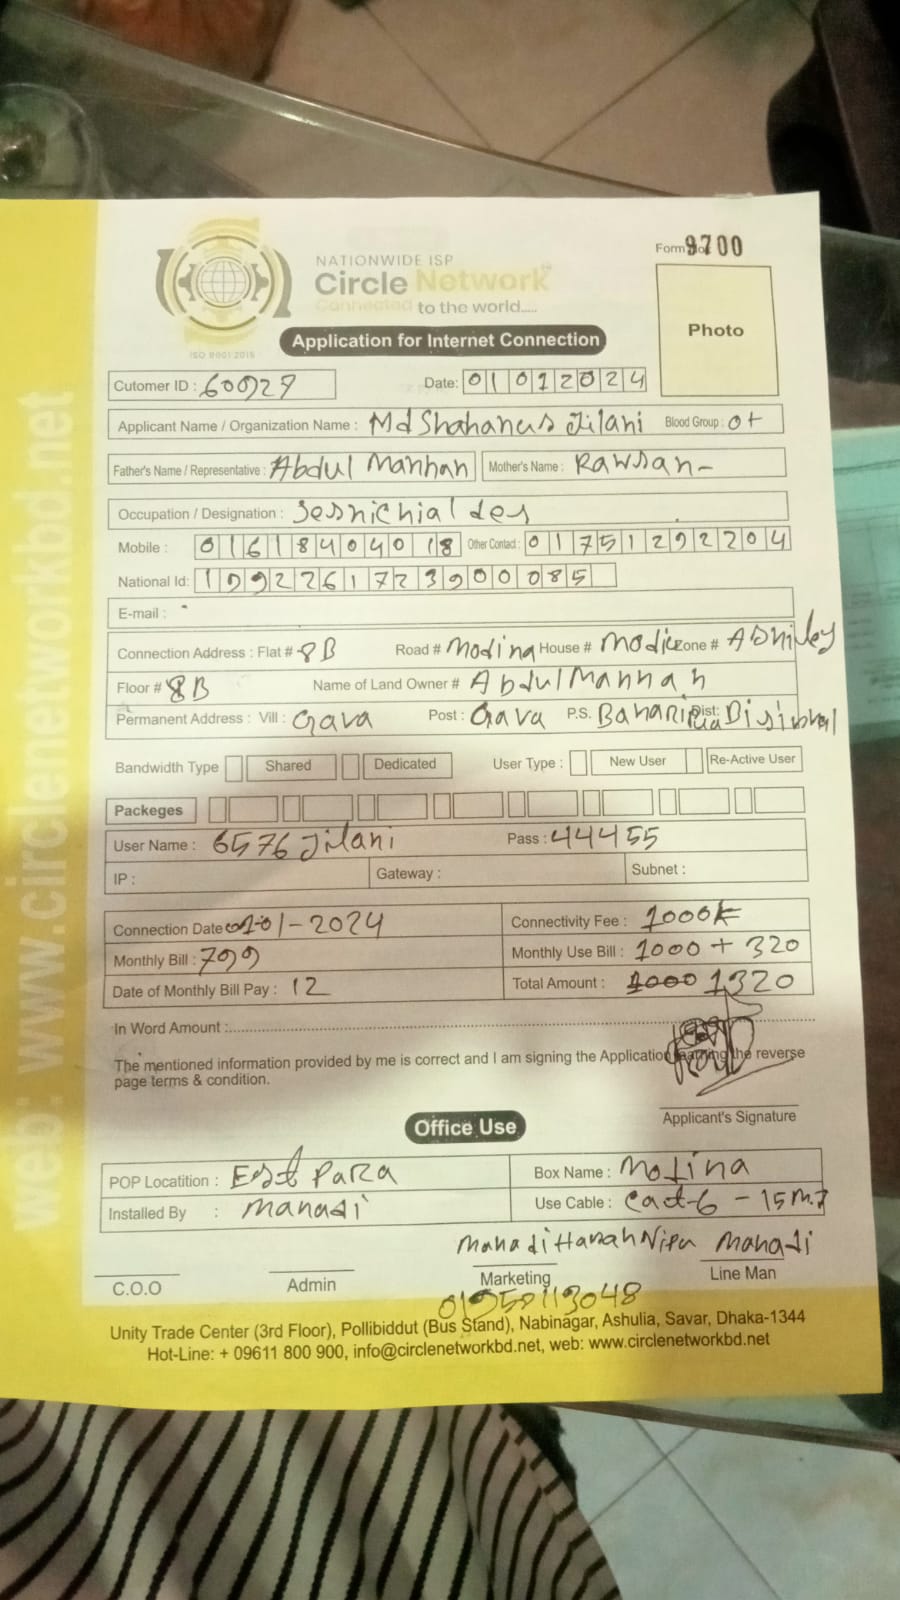 Form No. 9700
NATIONWIDE ISP
Circle Network
Connected to the world.....
ISO 9001:2015
Application for Internet Connection
Photo
Cutomer ID : 600927 Date: 01012024
Applicant Name / Organization Name : Md Shahanus Jilani Blood Group : O+
Father's Name / Representative : Abdul Manhan Mother's Name : Rawsan
Occupation / Designation :
Mobile : 01618404018 Other Contact : 01751292204
National Id: 19922617239000085
E-mail :
Connection Address : Flat # 8B Road # Modina House # Zone #
Floor # 8B Name of Land Owner # Abdul Mannan
Permanent Address : Vill : Gava Post : Gava P.S. Dist:
Bandwidth Type Shared Dedicated User Type : New User Re-Active User
Packeges
User Name : 6576 Jilani Pass : 44455
IP : Gateway : Subnet :
Connection Date 01-01-2024 Connectivity Fee : 1000
Monthly Bill : 799 Monthly Use Bill : 1000 + 320
Date of Monthly Bill Pay : 12 Total Amount : 1000 1320
In Word Amount :
The mentioned information provided by me is correct and I am signing the Application learning the reverse
page terms & condition.
Applicant's Signature
Office Use
POP Locatition : East Para Box Name : Modina
Installed By : Mahadi Use Cable : Cat-6 - 15 M
Mahadi Mahadi
C.O.O Admin Marketing Line Man
Unity Trade Center (3rd Floor), Pollibiddut (Bus Stand), Nabinagar, Ashulia, Savar, Dhaka-1344
Hot-Line: + 09611 800 900, info@circlenetworkbd.net, web: www.circlenetworkbd.net
web: www.circlenetworkbd.net